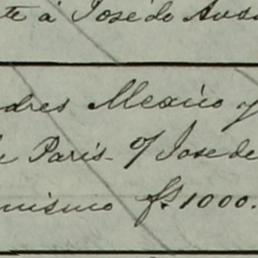 te á José de Ansa
dres Mexico y
de Paris. o/ Jose de
mismo f. 1000.